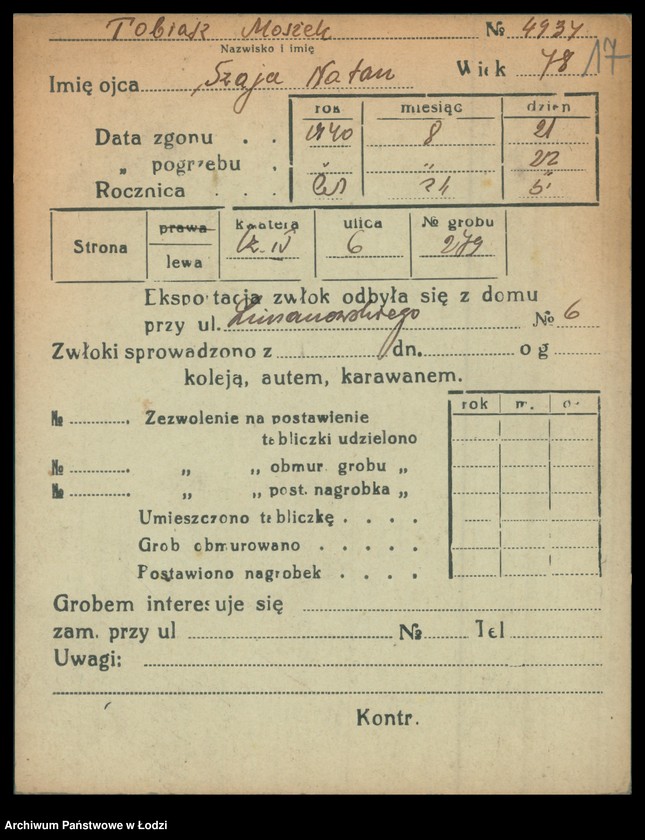 Tobiasz Moszek № 4934
Nazwisko i imię
Imię ojca Szaja Natan Wiek 78 17
rok miesiąc dzień
Data zgonu . . 1940 8 21
„ pogrzebu . „ „ 22
Rocznica . . .
Strona prawa kwatera ulica № grobu
lewa IV 6 279
Eksportacja zwłok odbyła się z domu
przy ul. Limanowskiego № 6
Zwłoki sprowadzono z dn. o g
koleją, autem, karawanem.
rok m. d.
№ Zezwolenie na postawienie
tabliczki udzielono
№ „ „ obmur. grobu „
№ „ „ post. nagrobka „
Umieszczono tabliczkę . . . .
Grob obmurowano . . . . .
Postawiono nagrobek . . . .
Grobem interesuje się
zam. przy ul № Tel
Uwagi:
Kontr.
Archiwum Państwowe w Łodzi